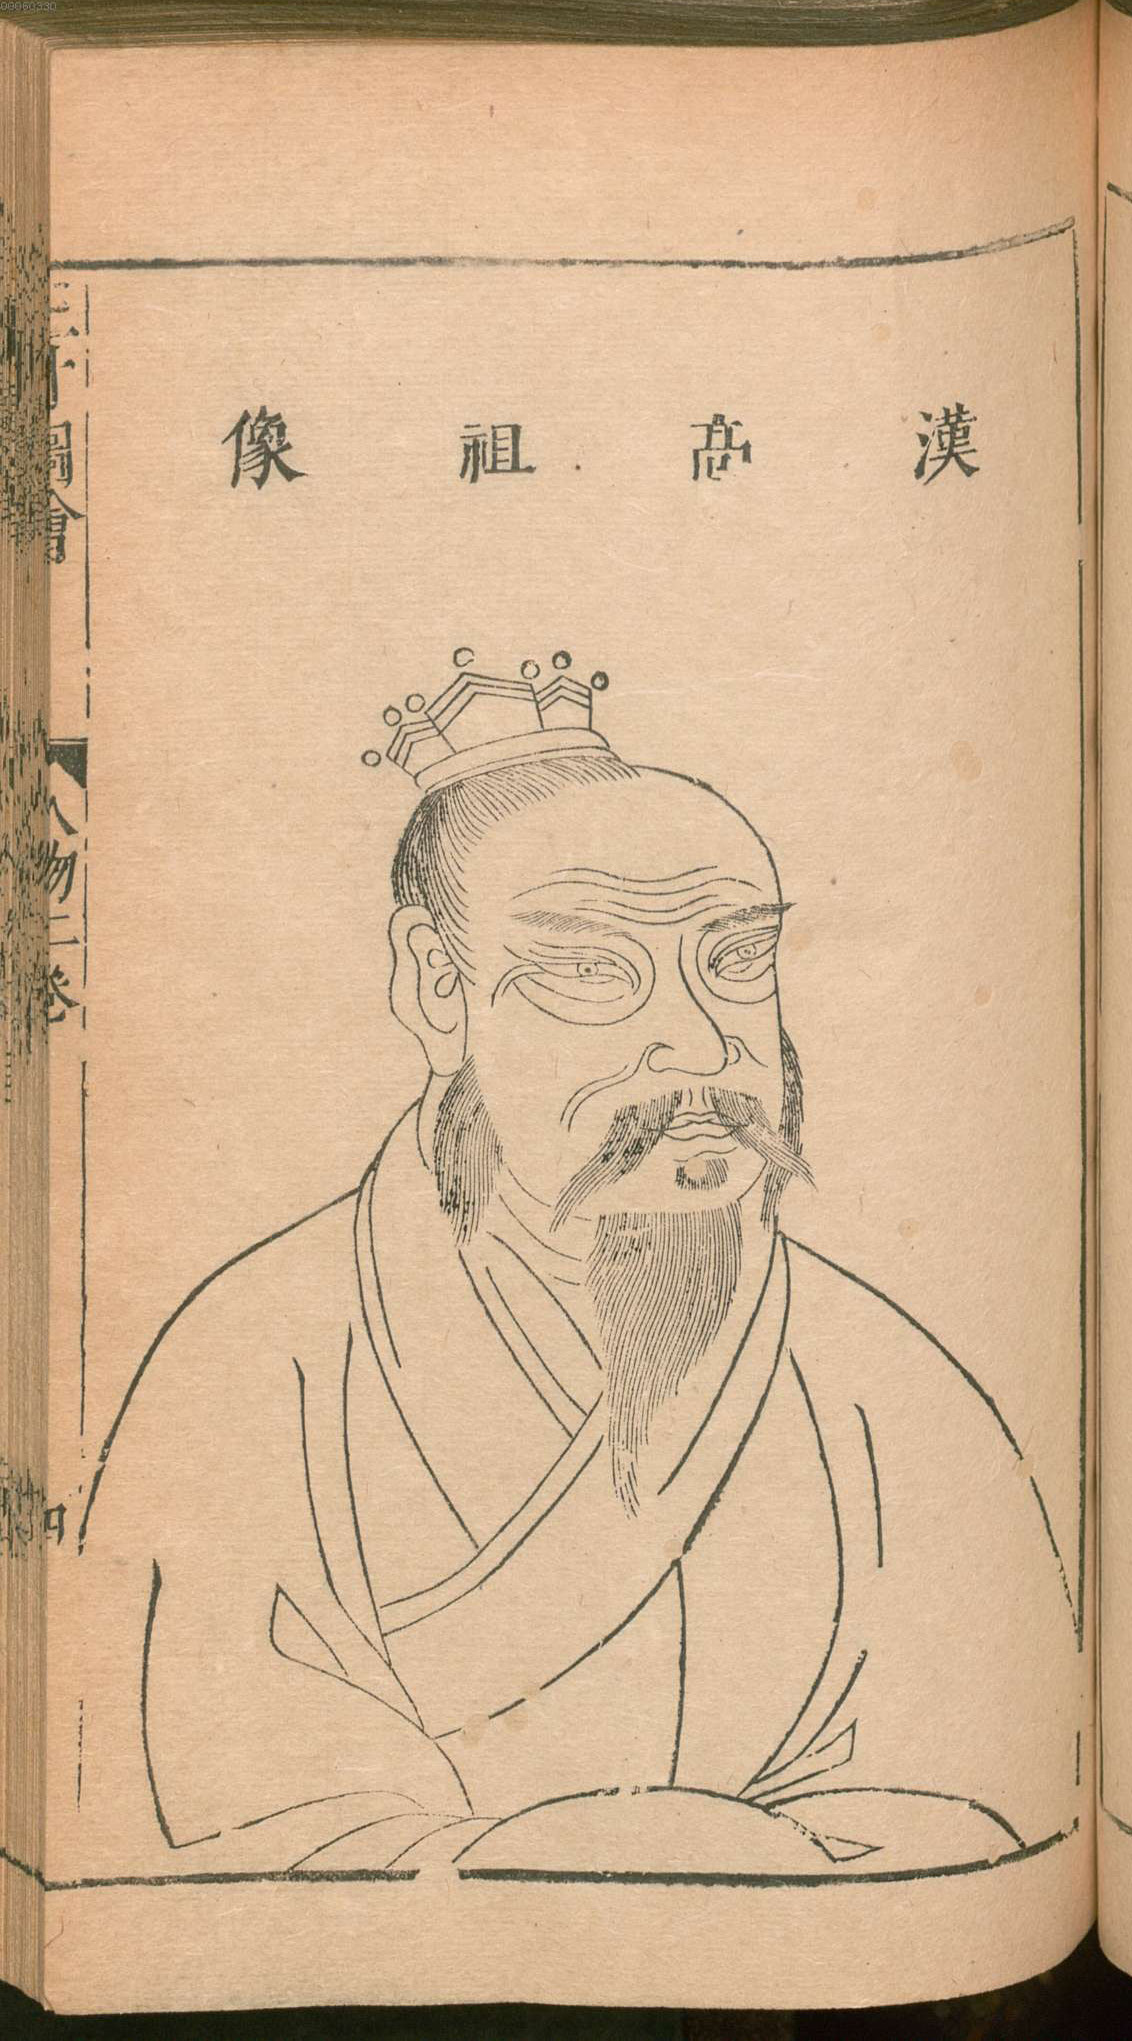 漢髙祖像
三才圖會
人物二卷
四
09060330